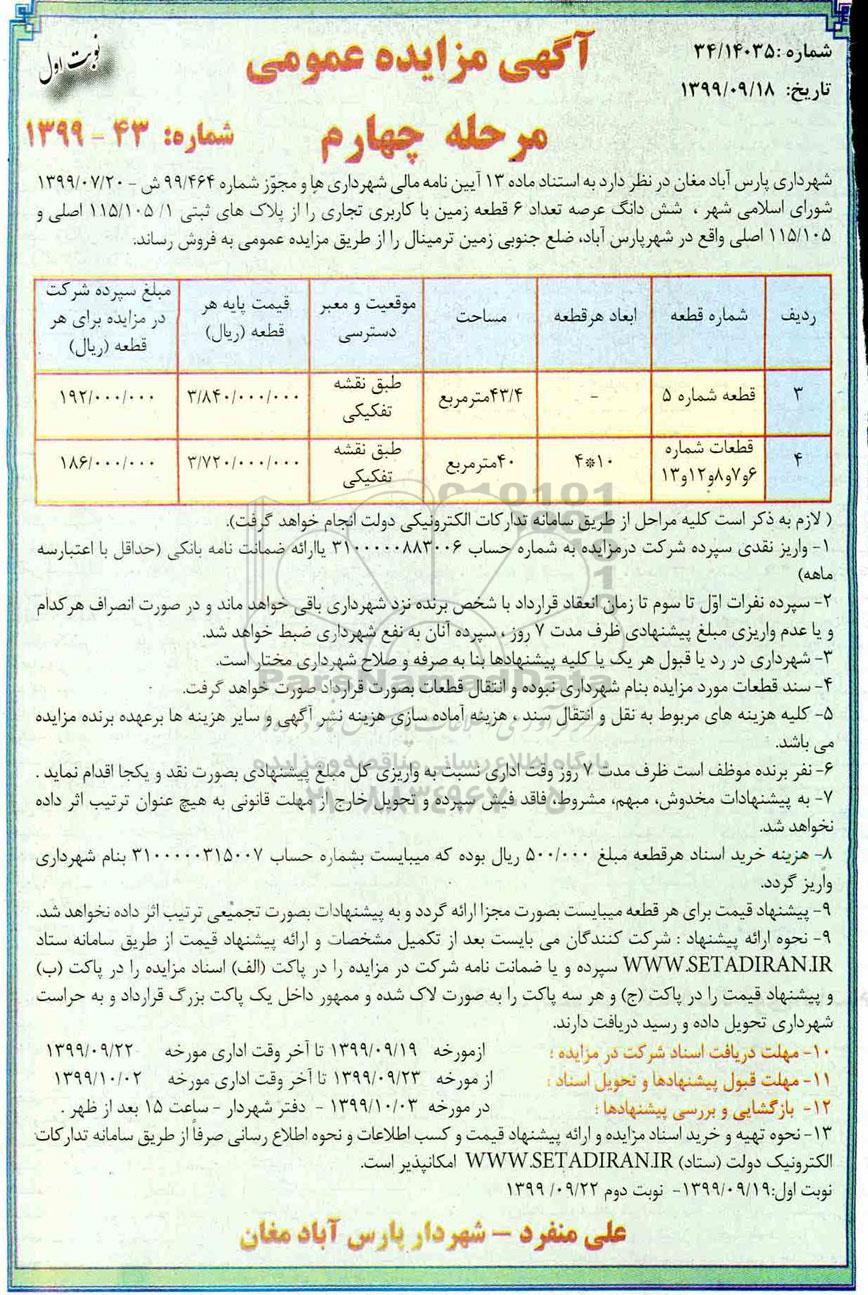 شماره :۳۴/۱۴۰۳۵
تاریخ: ۱۳۹۹/۰۹/۱۸
آگهی مزایده عمومی
نوبت اول
مرحله چهارم
شماره: ۴۳ - ۱۳۹۹
شهرداری پارس آباد مغان در نظر دارد به استناد ماده ۱۳ آیین نامه مالی شهرداری ها و مجوّز شماره ۹۹/۴۶۴ ش - ۱۳۹۹/۰۷/۲۰
شورای اسلامی شهر ، شش دانگ عرصه تعداد ۶ قطعه زمین با کاربری تجاری را از پلاک های ثبتی ۱/ ۱۱۵/۱۰۵ اصلی و
۱۱۵/۱۰۵ اصلی واقع در شهرپارس آباد، ضلع جنوبی زمین ترمینال را از طریق مزایده عمومی به فروش رساند.
ردیف شماره قطعه ابعاد هرقطعه مساحت موقعیت و معبر دسترسی قیمت پایه هر قطعه (ریال) مبلغ سپرده شرکت در مزایده برای هر قطعه (ریال)
۳ قطعه شماره ۵ - ۴۳/۴مترمربع طبق نقشه تفکیکی ۳/۸۴۰/۰۰۰/۰۰۰ ۱۹۲/۰۰۰/۰۰۰
۴ قطعات شماره ۶و۷و۸و۱۲و۱۳ ۱۰*۴ ۴۰مترمربع طبق نقشه تفکیکی ۳/۷۲۰/۰۰۰/۰۰۰ ۱۸۶/۰۰۰/۰۰۰
( لازم به ذکر است کلیه مراحل از طریق سامانه تدارکات الکترونیکی دولت انجام خواهد گرفت).
۱- واریز نقدی سپرده شرکت درمزایده به شماره حساب ۳۱۰۰۰۰۰۸۸۳۰۰۶ یاارائه ضمانت نامه بانکی (حداقل با اعتبارسه
ماهه)
۲- سپرده نفرات اوّل تا سوم تا زمان انعقاد قرارداد با شخص برنده نزد شهرداری باقی خواهد ماند و در صورت انصراف هرکدام
و یا عدم واریزی مبلغ پیشنهادی ظرف مدت ۷ روز ، سپرده آنان به نفع شهرداری ضبط خواهد شد.
۳- شهرداری در رد یا قبول هر یک یا کلیه پیشنهادها بنا به صرفه و صلاح شهرداری مختار است.
۴- سند قطعات مورد مزایده بنام شهرداری نبوده و انتقال قطعات بصورت قرارداد صورت خواهد گرفت.
۵- کلیه هزینه های مربوط به نقل و انتقال سند ، هزینه آماده سازی هزینه نشر آگهی و سایر هزینه ها برعهده برنده مزایده
می باشد.
۶- نفر برنده موظف است ظرف مدت ۷ روز وقت اداری نسبت به واریزی کل مبلغ پیشنهادی بصورت نقد و یکجا اقدام نماید .
۷- به پیشنهادات مخدوش، مبهم، مشروط، فاقد فیش سپرده و تحویل خارج از مهلت قانونی به هیچ عنوان ترتیب اثر داده
نخواهد شد.
۸- هزینه خرید اسناد هرقطعه مبلغ ۵۰۰/۰۰۰ ریال بوده که میبایست بشماره حساب ۳۱۰۰۰۰۰۳۱۵۰۰۷ بنام شهرداری
واریز گردد.
۹- پیشنهاد قیمت برای هر قطعه میبایست بصورت مجزا ارائه گردد و به پیشنهادات بصورت تجمیعی ترتیب اثر داده نخواهد شد.
۹- نحوه ارائه پیشنهاد : شرکت کنندگان می بایست بعد از تکمیل مشخصات و ارائه پیشنهاد قیمت از طریق سامانه ستاد
WWW.SETADIRAN.IR سپرده و یا ضمانت نامه شرکت در مزایده را در پاکت (الف) اسناد مزایده را در پاکت (ب)
و پیشنهاد قیمت را در پاکت (ج) و هر سه پاکت را به صورت لاک شده و ممهور داخل یک پاکت بزرگ قرارداد و به حراست
شهرداری تحویل داده و رسید دریافت دارند.
۱۰- مهلت دریافت اسناد شرکت در مزایده : ازمورخه ۱۳۹۹/۰۹/۱۹ تا آخر وقت اداری مورخه ۱۳۹۹/۰۹/۲۲
۱۱- مهلت قبول پیشنهادها و تحویل اسناد : از مورخه ۱۳۹۹/۰۹/۲۳ تا آخر وقت اداری مورخه ۱۳۹۹/۱۰/۰۲
۱۲- بازگشایی و بررسی پیشنهادها : در مورخه ۱۳۹۹/۱۰/۰۳ - دفتر شهردار - ساعت ۱۵ بعد از ظهر .
۱۳- نحوه تهیه و خرید اسناد مزایده و ارائه پیشنهاد قیمت و کسب اطلاعات و نحوه اطلاع رسانی صرفاً از طریق سامانه تدارکات
الکترونیک دولت (ستاد) WWW.SETADIRAN.IR امکانپذیر است.
نوبت اول:۱۳۹۹/۰۹/۱۹- نوبت دوم ۰۹/۲۲/ ۱۳۹۹
علی منفرد - شهردار پارس آباد مغان
ParsNamadData
پایگاه اطلاع رسانی مناقصه و مزایده